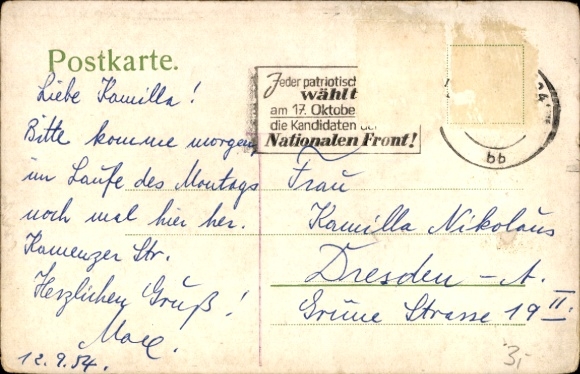 Postkarte.
Liebe Kamilla!
Bitte komme morgen
im Laufe des Montags
noch mal hier her.
Kamenzer Str.
Herzlichen Gruß!
Max.
12.9.54.
Jeder patriotisch
wählt
am 17. Oktobe
die Kandidaten der
Nationalen Front!
bb
Frau
Kamilla Nikolaus
Dresden-A.
Grüne Strasse 19 II.
3,-